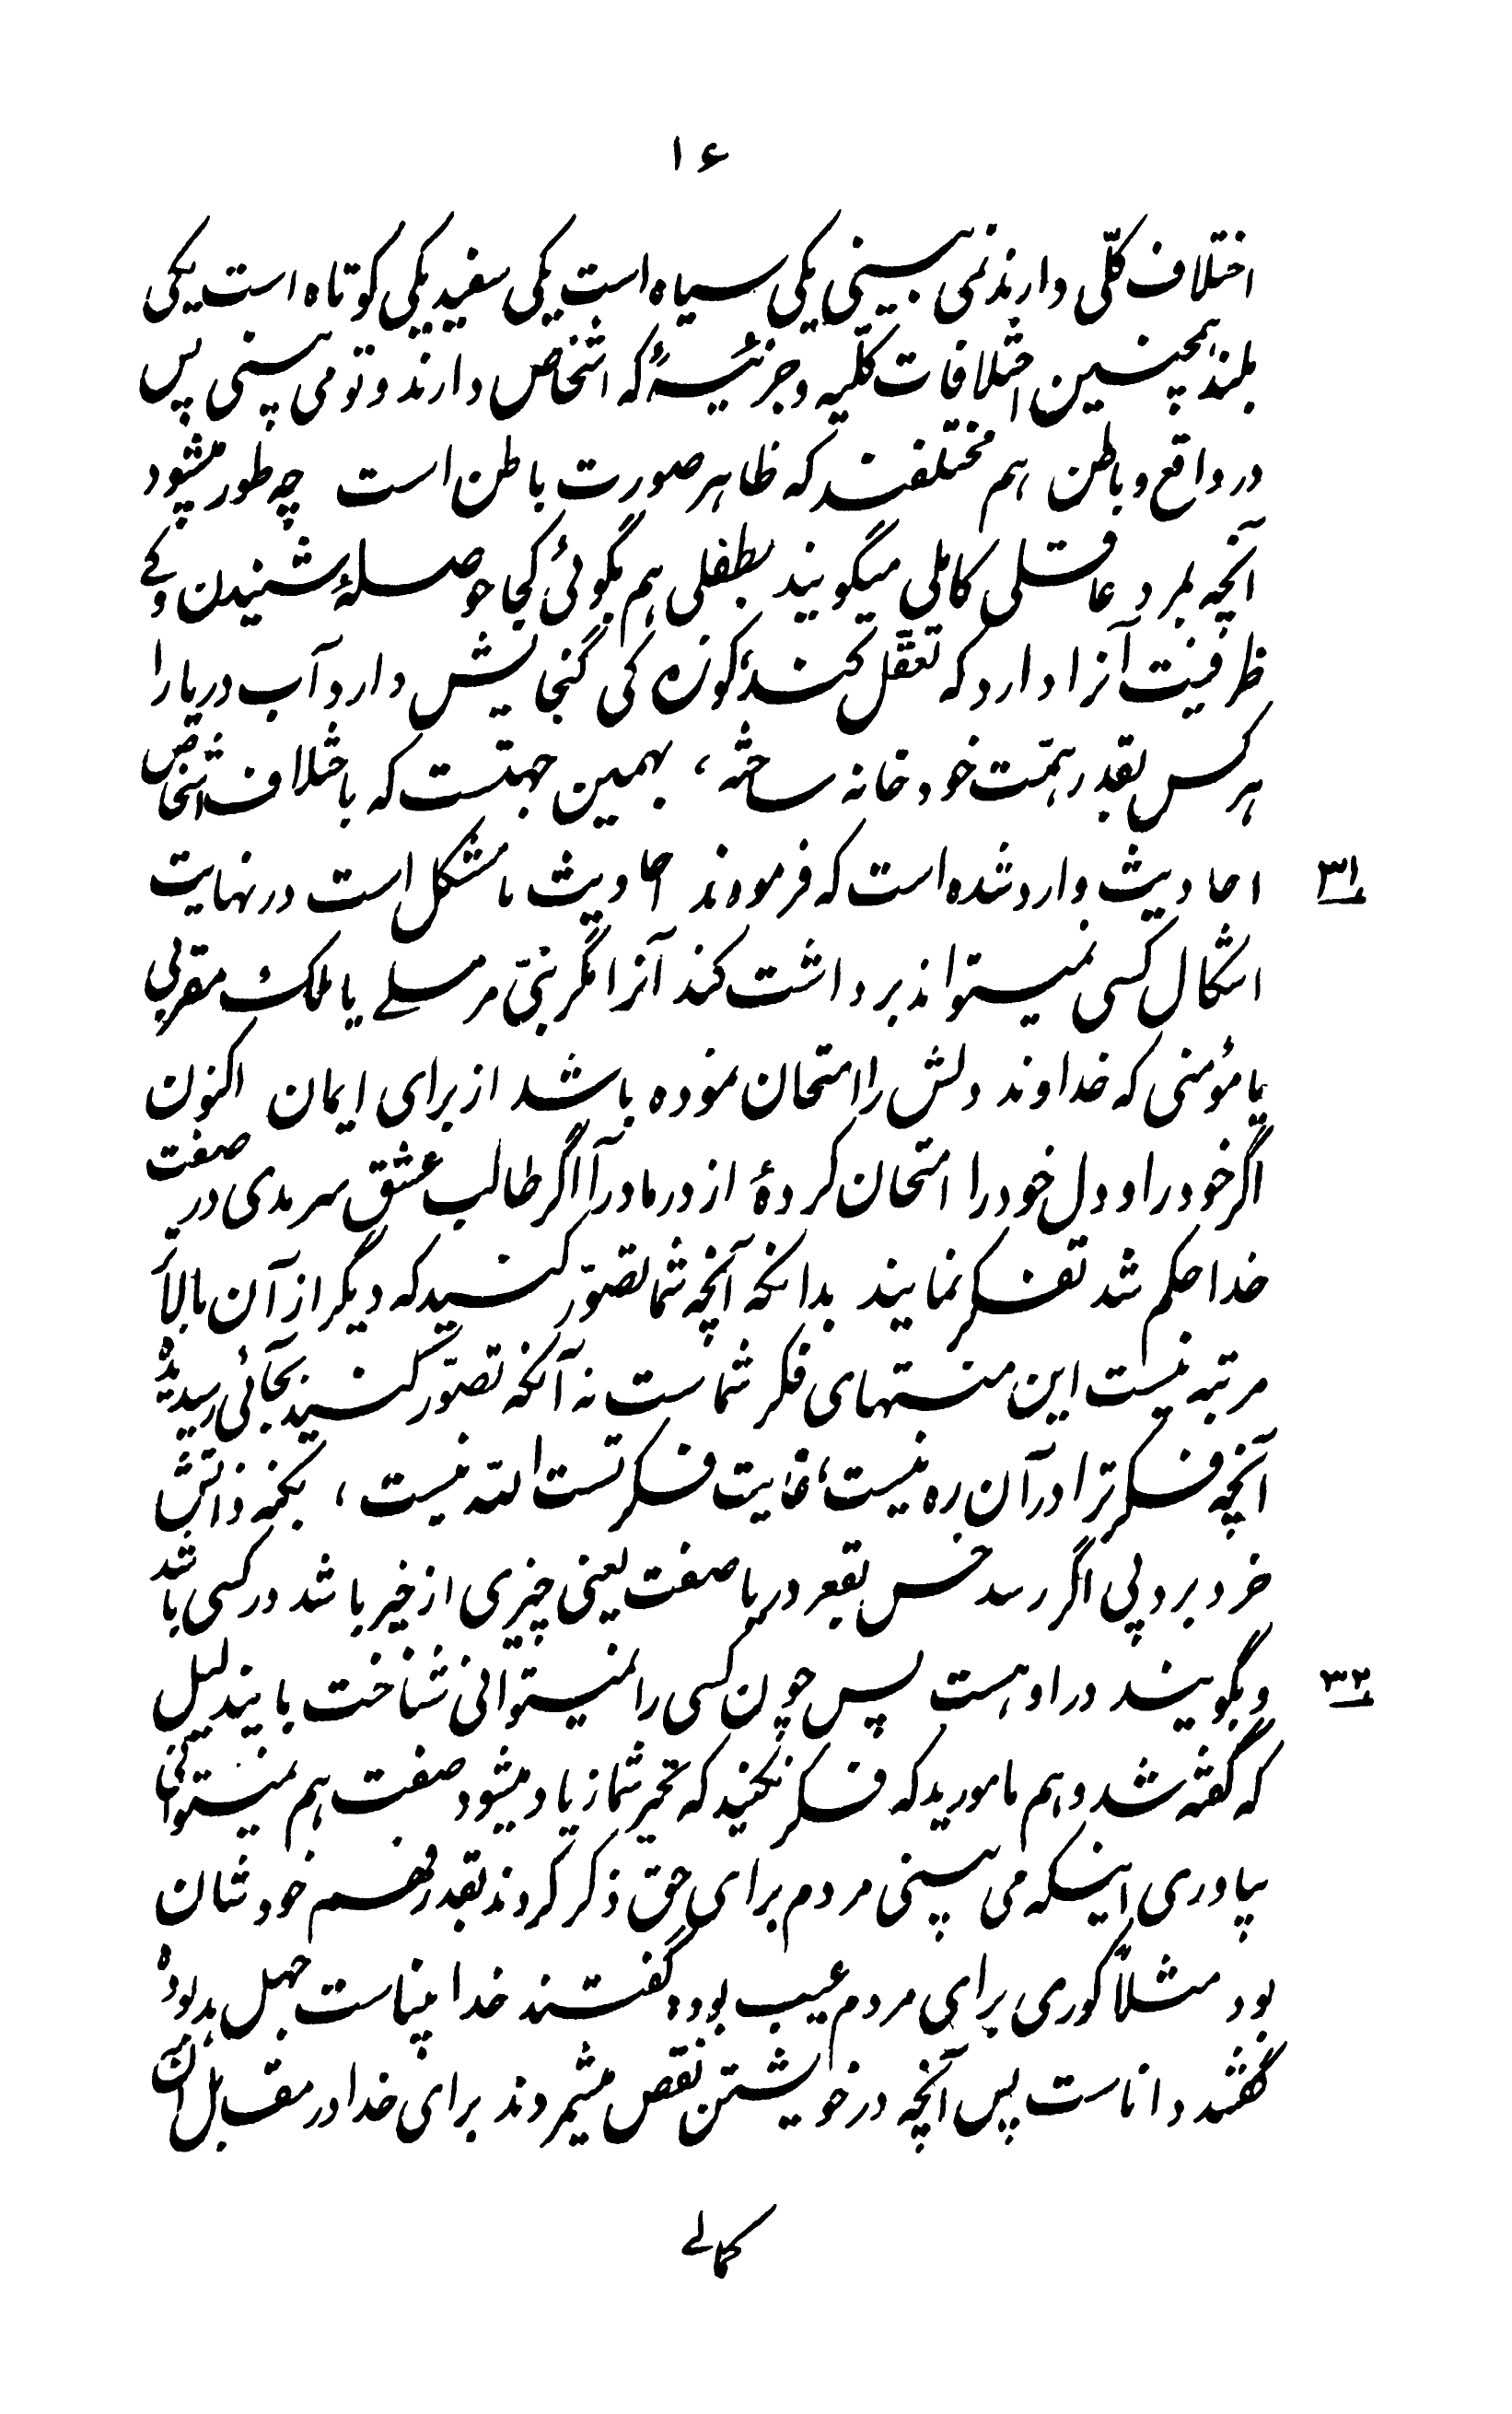 ۱۶
اختلاف کلّی دارند نمی بینی یکی سیاه است یکی سفید یکی کوتاه است یکی
بلند همچنین اختلافات کلّیه و جزئیهٔ که اشخاص دارند و تو می بینی پس
در واقع و باطن هم مختلفند که ظاهر صورت باطن است چه طور میشود
آنچه بمرد عاقلی کاملی میگویند بطفلی هم بگوئی کجا حوصلهٔ شنیدن و کے
ظرفیت آنرا دارد که تعقّل کند، کوزه کی گنجایش دارد آب دریا را
هر کس بقدر همّت خود خانه ساخته، بهمین جهتست که باختلاف اشخاص
احادیث وارد شده است که فرمودند احادیث ما مشکل است در نهایت
۳۱
اشکال کسی نمیتواند برداشت کند آنرا مگر نبیّ مرسلے یا ملک مقربی
یا مؤمنی که خداوند دلش را امتحان نموده باشد از برای ایمان اکنون
اگر خود را و دل خود را امتحان کردهٔ از در ما درآ اگر طالب عشق سرمدی در صفت
خدا حکم شد تفکر نمایند بدانکه آنچه شما تصوّر کنید که دیگر از آن بالا
مرتبه نیست این منتهای فکر شماست نه آنکه تصوّر کنید بجائی رسیدیده
آنچه فکر ترا در آن ره نیست، غایت فکر تست الله نیست، بکنه ذاتش
خرد برد پی اگر رسد خس بقعر دریا صفت یعنی چیزی از خیر باشد در کسی باشد
و بگویند در او هست پس چون کسی را نمیتوانی شناخت باین دلیل
۳۲
که گفته شد و هم مامورید که فکر نکنید که تحیر شما زیاد میشود صفت هم نمیتوانی
بیاوری اینکه می بینی مردم برای حق ذکر کردند بقدر فهم خودشان
بود مثلاً کوری برای مردم عیب بوده گفتند خدا بیناست جهل بد بوده
گفتند داناست پس آنچه در خویشتن نقص میشمردند برای خدا در مقابل آن
کمالے